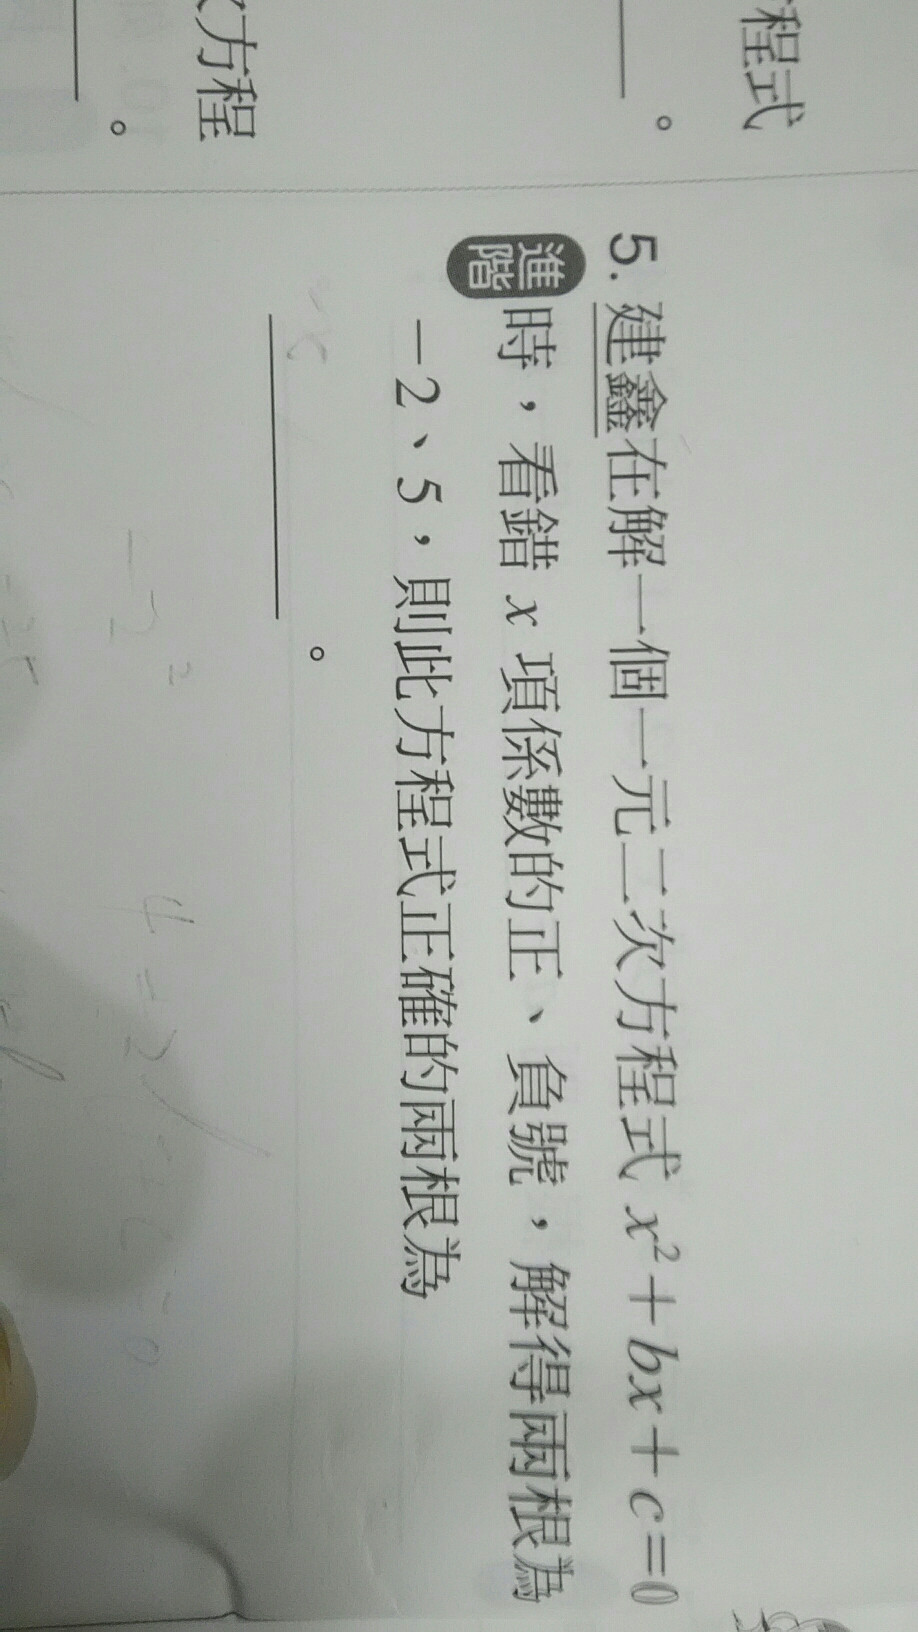 程式
。
次方程
。
5. 建鑫在解一個一元二次方程式 x²+bx+c=0
進階 時，看錯 x 項係數的正、負號，解得兩根為
-2、5，則此方程式正確的兩根為
。
-2²